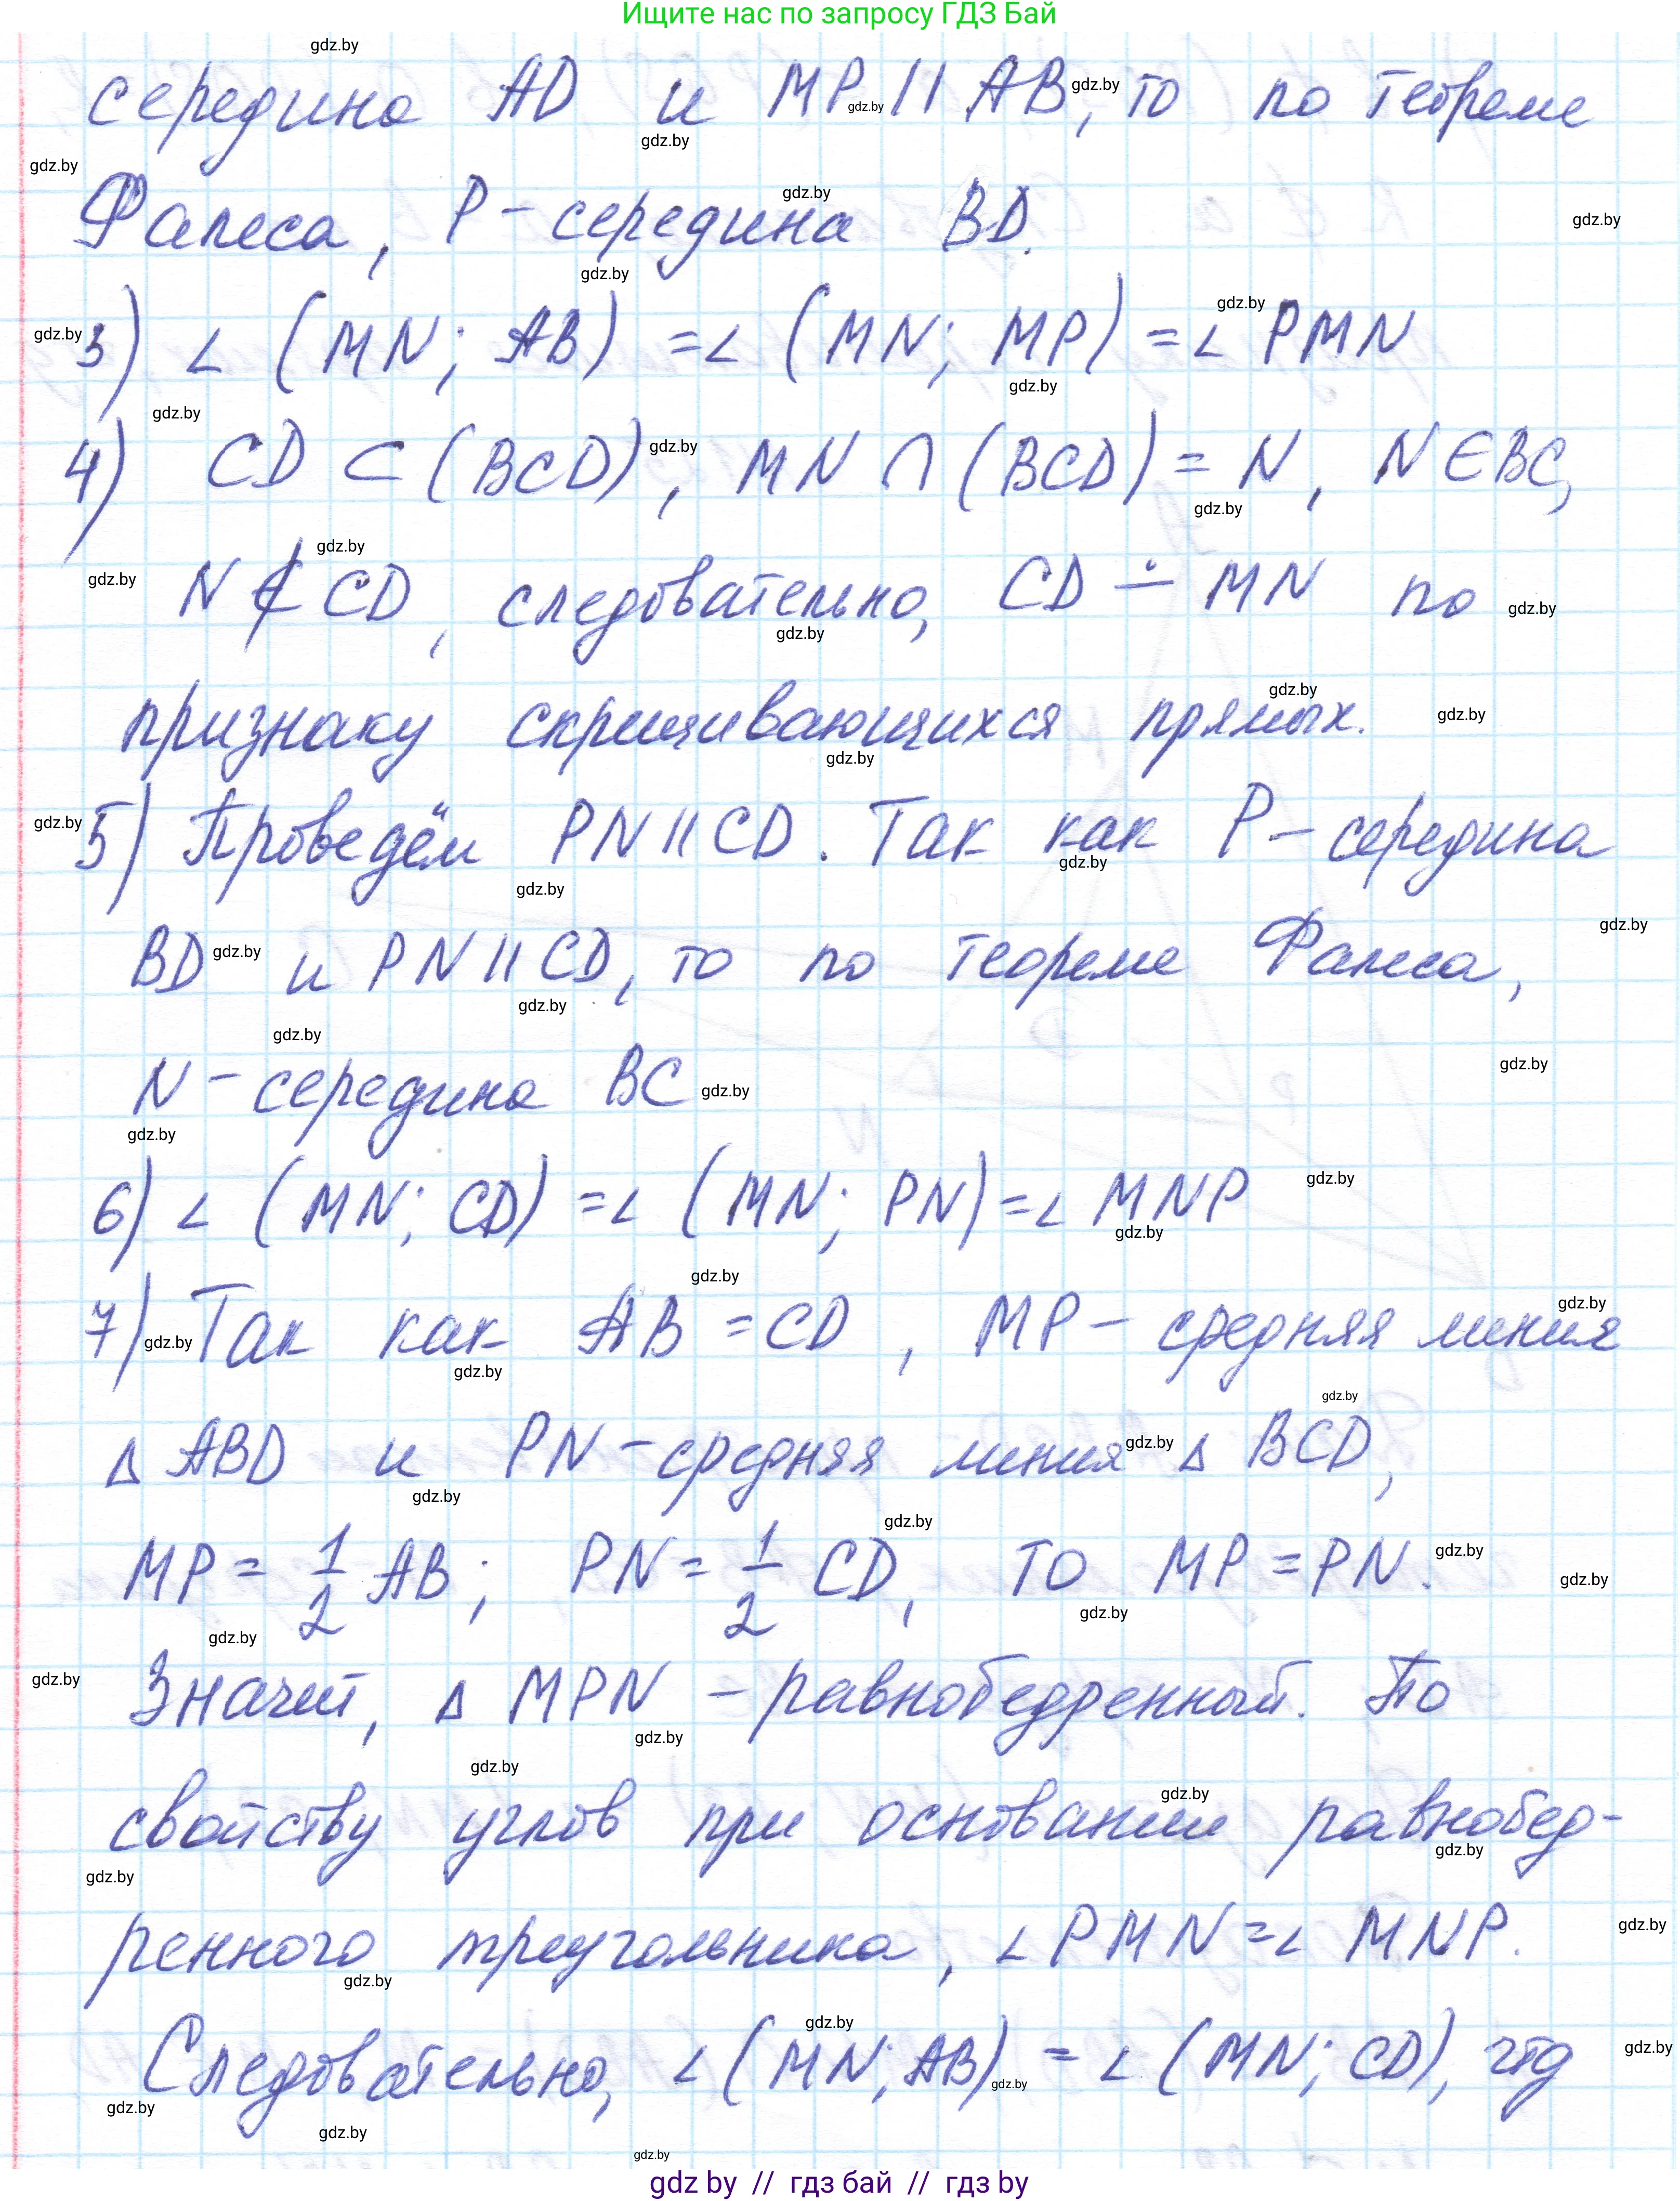 Ищите нас по запросу ГДЗ Бай
середина AD и MP || AB, то по теореме
Фалеса, P - середина BD.
3) ∠ (MN; AB) = ∠ (MN; MP) = ∠ PMN
4) CD ⊂ (BCD), MN ∩ (BCD) = N, N ∈ BC,
N ∉ CD, следовательно, CD ∸ MN по
признаку скрещивающихся прямых.
5) Проведём PN || CD. Так как P - середина
BD и PN || CD, то по теореме Фалеса,
N - середина BC
6) ∠ (MN; CD) = ∠ (MN; PN) = ∠ MNP
7) Так как AB = CD, MP - средняя линия
Δ ABD и PN - средняя линия Δ BCD,
MP = 1/2 AB; PN = 1/2 CD, то MP = PN.
Значит, Δ MPN - равнобедренный. По
свойству углов при основании равнобед-
ренного треугольника, ∠ PMN = ∠ MNP.
Следовательно, ∠ (MN; AB) = ∠ (MN; CD), чтд
gdz by // гдз бай // гдз by